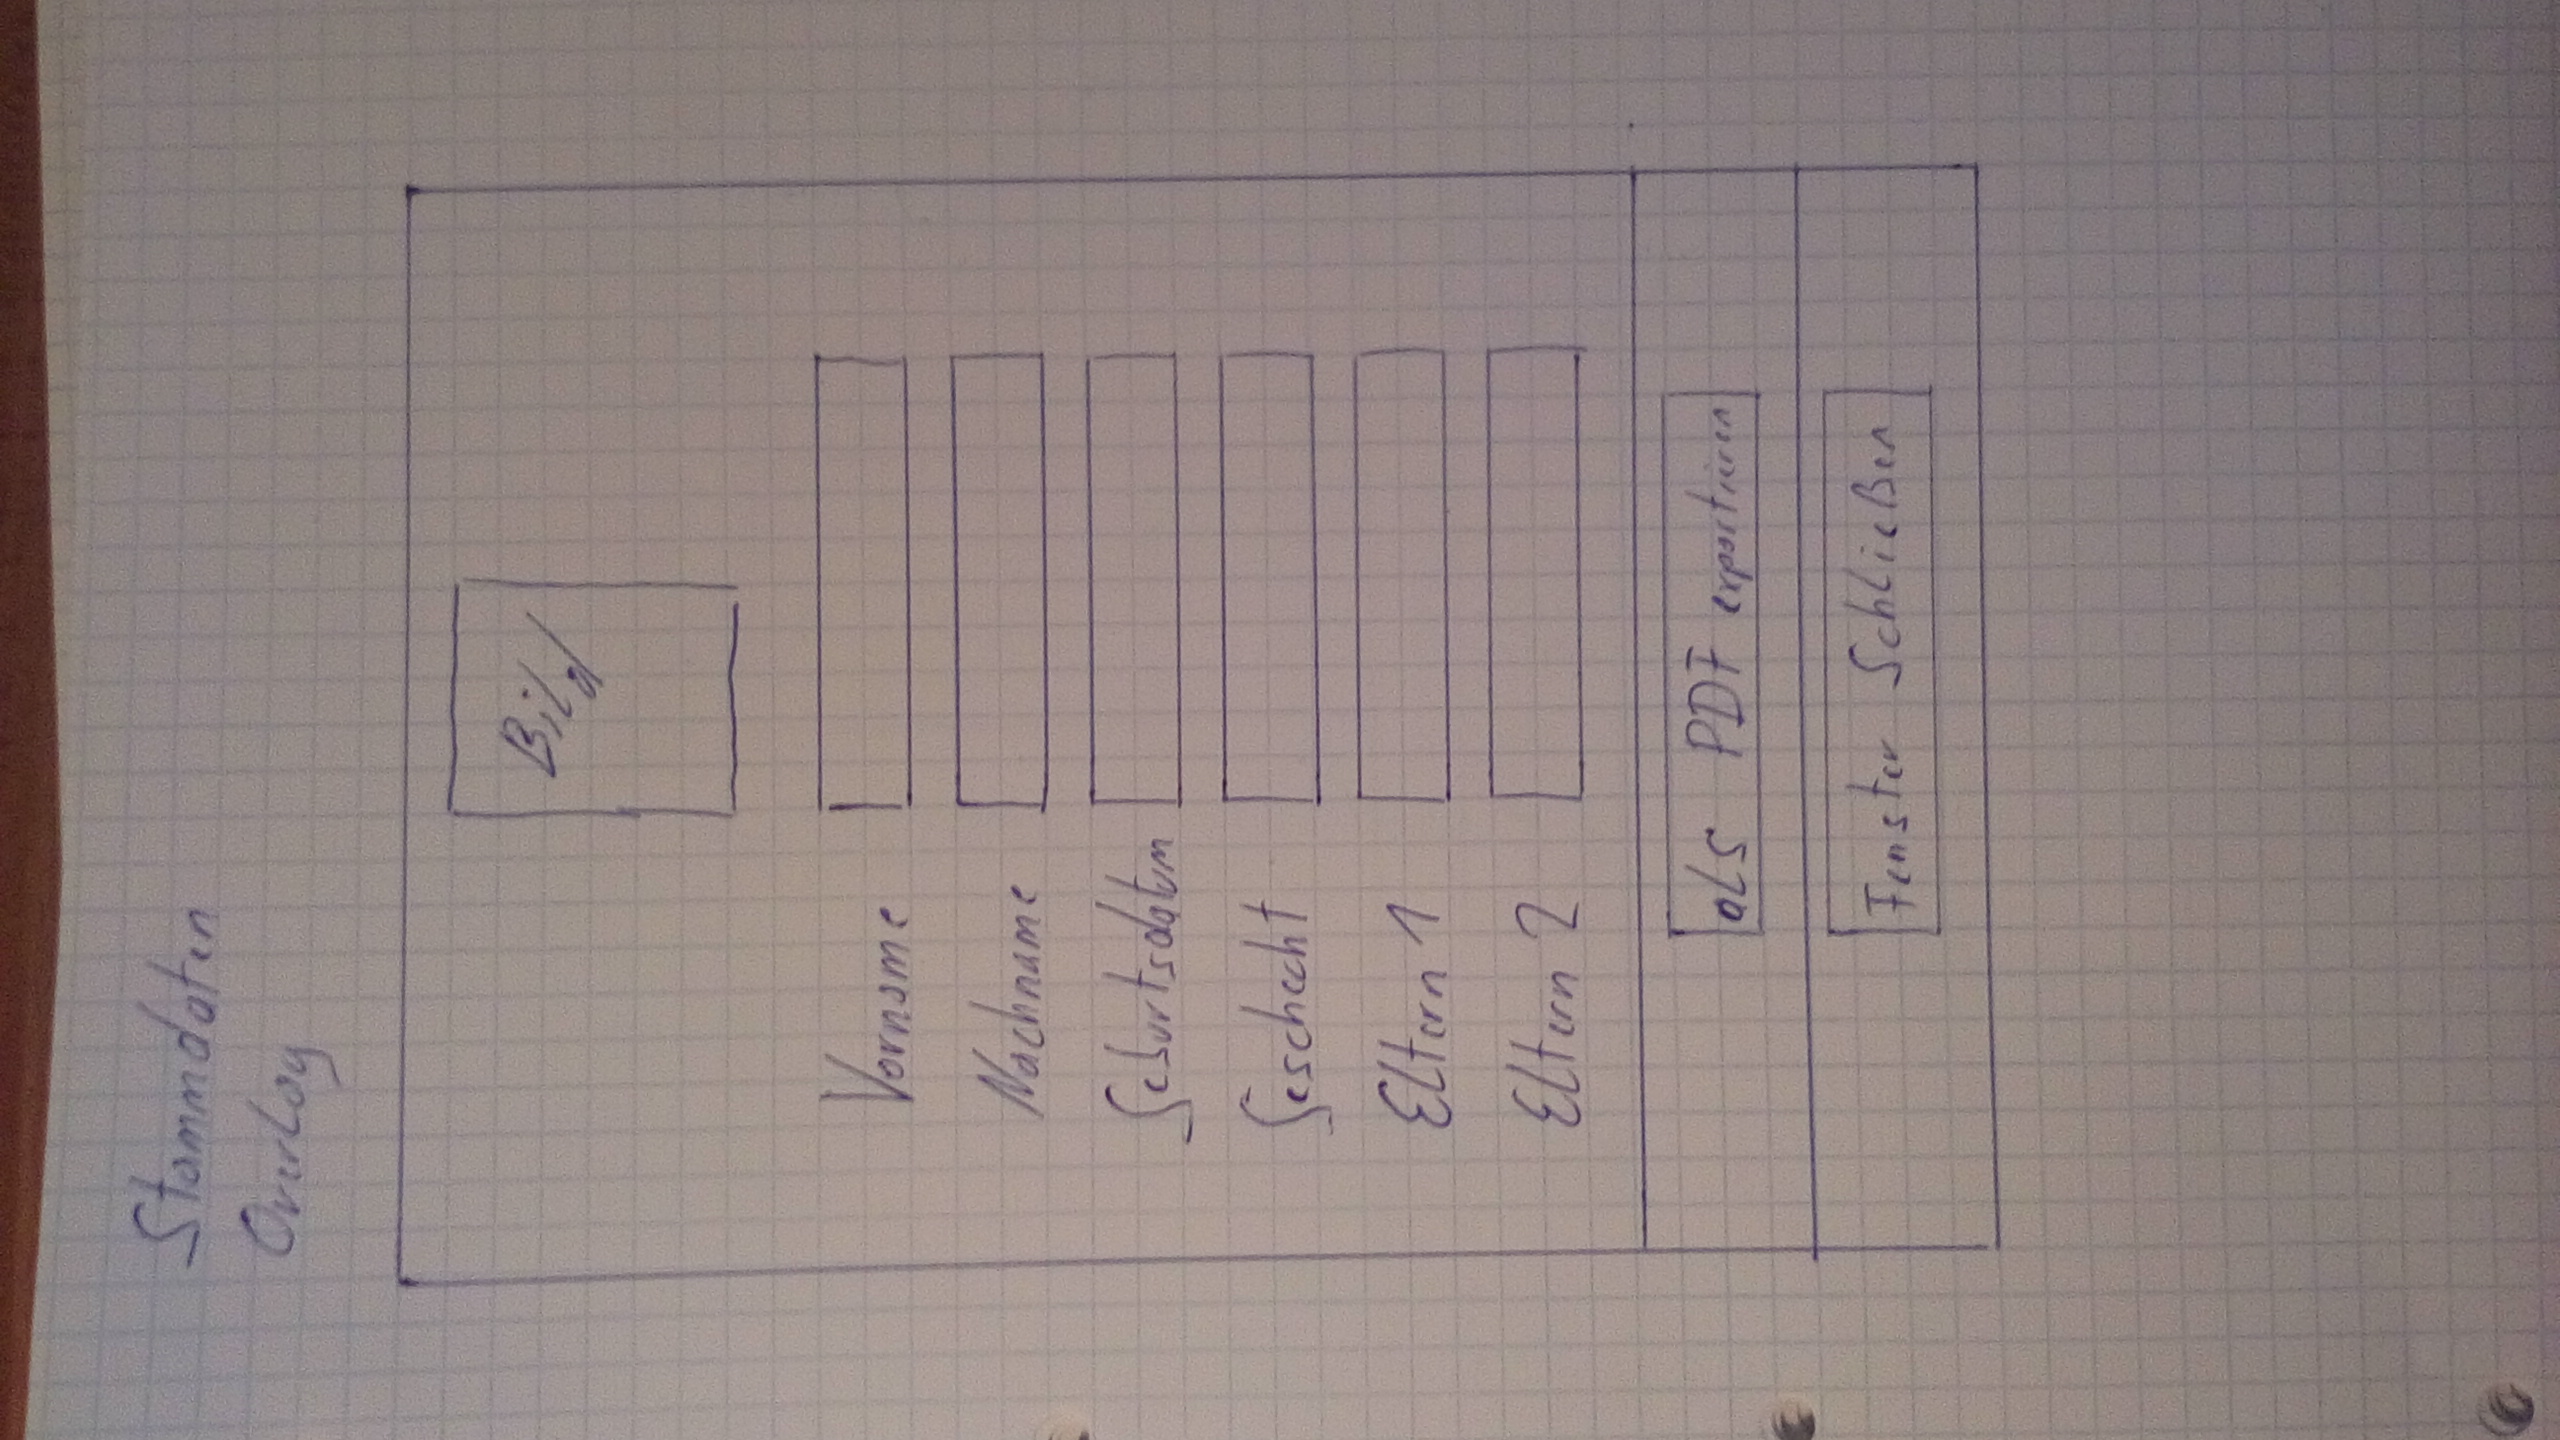 Stammdaten
Overlay
Bild
Vorname
Nachname
Geburtsdatum
Geschecht
Eltern 1
Eltern 2
als PDF exportieren
Fenster Schließen